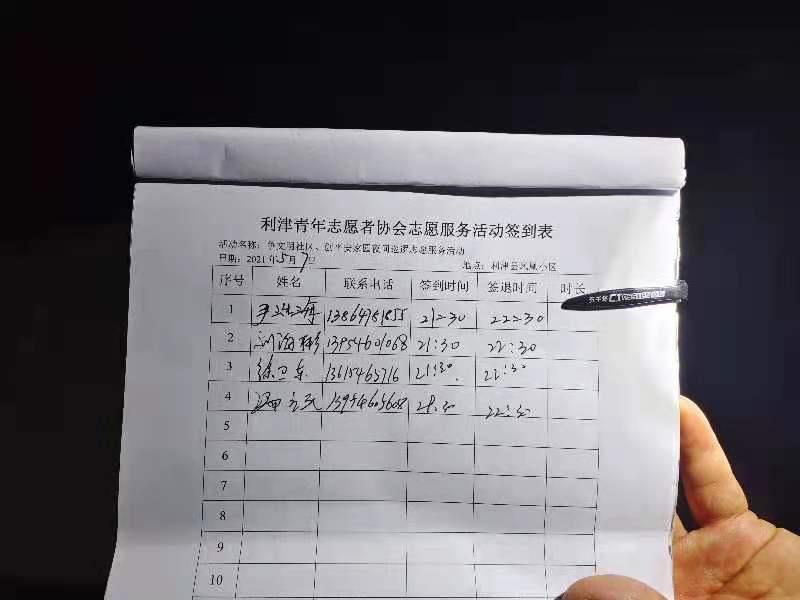 利津青年志愿者协会志愿服务活动签到表
活动名称：争文明社区、创平安家园夜间巡逻志愿服务活动
日期：2021年5月7日 地点：利津县凤凰小区
序号 姓名 联系电话 签到时间 签退时间 时长
1 21:30 22:30
2 刘海彬 13954601068 21:30 22:30
3 徐卫东 13615465716 21:30 22:30
4 13954605608 21:30 22:30
5
6
7
8
9
10